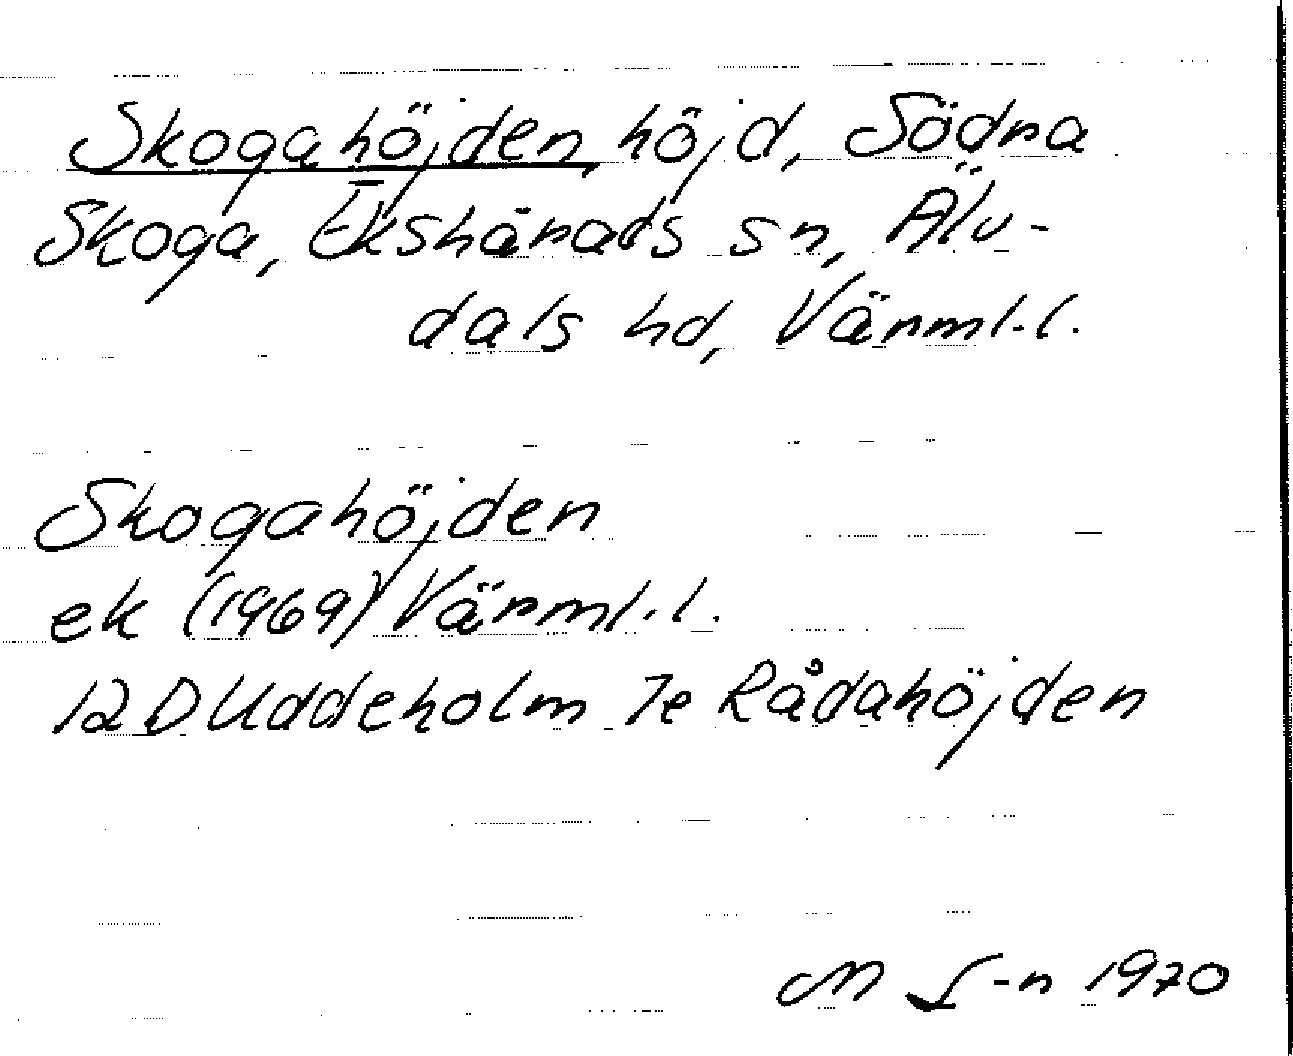 Skogahöjden, höjd, Södra
Skoga, Ekshärads sn, Älv-
dals hd, Värml.l.
Skogahöjden
ek (1969) Värml.l.
12D Uddeholm 7e Rådahöjden
M S-n 1970